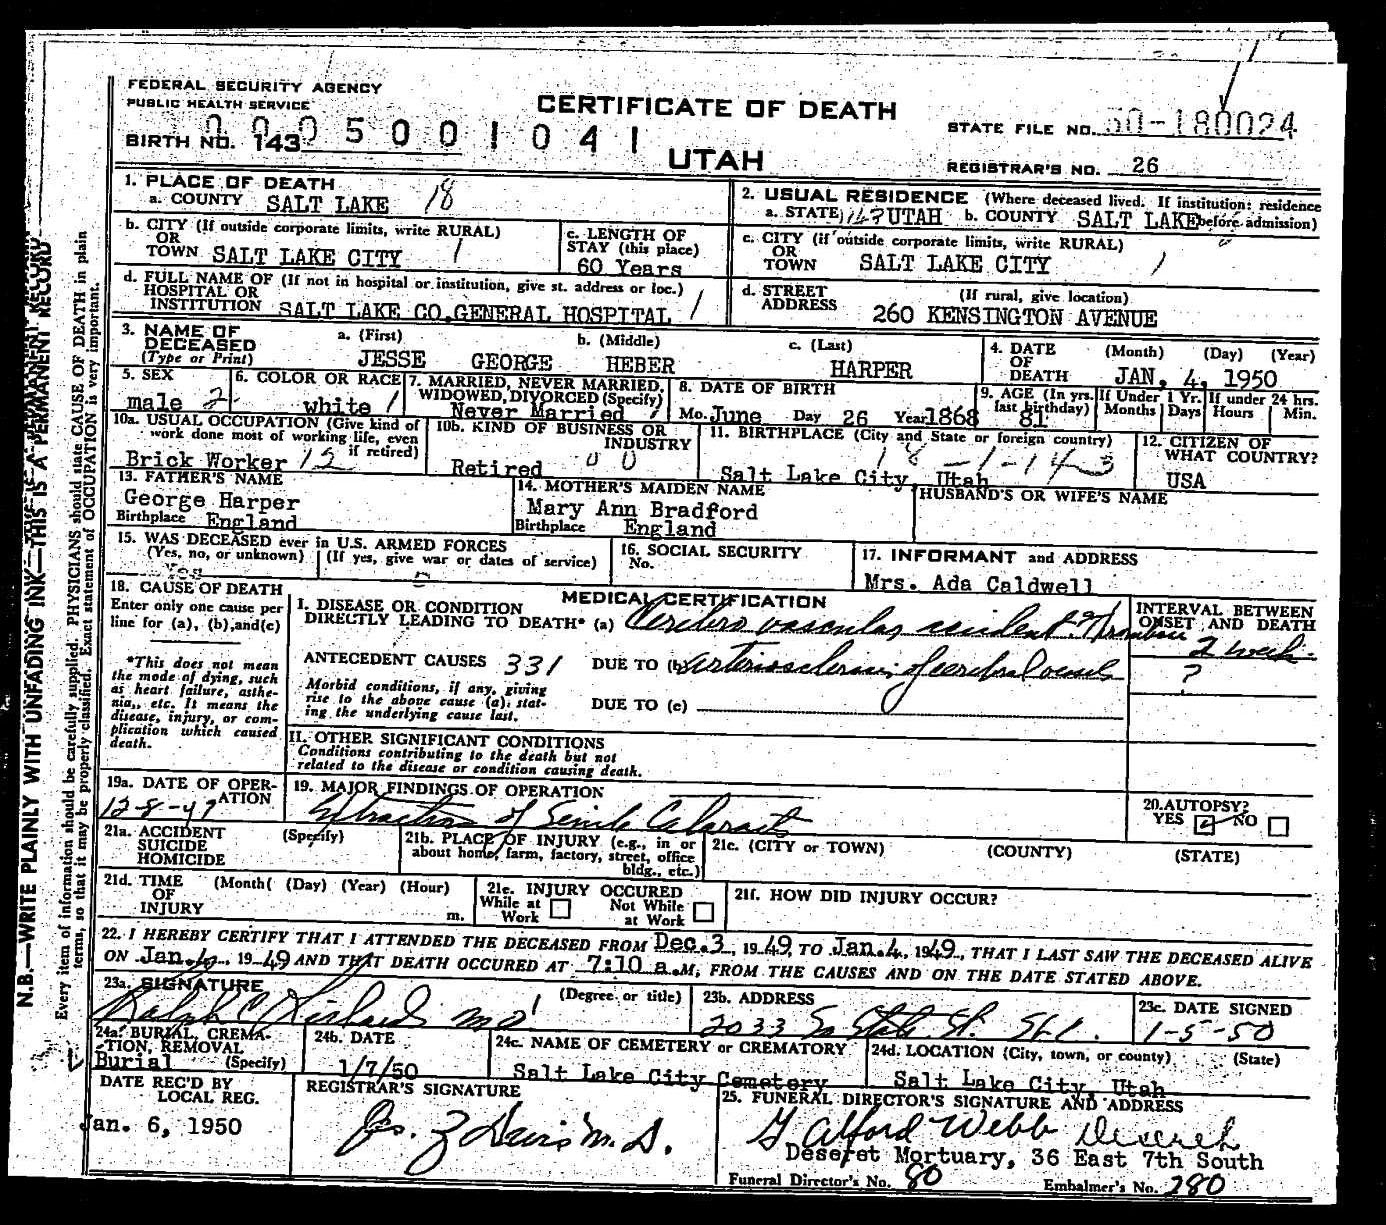 FEDERAL SECURITY AGENCY
PUBLIC HEALTH SERVICE
CERTIFICATE OF DEATH
UTAH
BIRTH NO. 143
0005001041
STATE FILE NO. 50-180024
REGISTRAR'S NO. 26
1. PLACE OF DEATH
a. COUNTY SALT LAKE 18
b. CITY (If outside corporate limits, write RURAL)
OR
TOWN SALT LAKE CITY 1
c. LENGTH OF
STAY (this place)
60 Years
d. FULL NAME OF (If not in hospital or institution, give st. address or loc.)
HOSPITAL OR
INSTITUTION SALT LAKE CO.GENERAL HOSPITAL 1
2. USUAL RESIDENCE (Where deceased lived. If institution: residence
a. STATE 143 UTAH b. COUNTY SALT LAKE before admission)
c. CITY (if outside corporate limits, write RURAL)
OR
TOWN SALT LAKE CITY 1
d. STREET (If rural, give location)
ADDRESS 260 KENSINGTON AVENUE
3. NAME OF
DECEASED
(Type or Print)
a. (First) b. (Middle) c. (Last)
JESSE GEORGE HEBER HARPER
4. DATE (Month) (Day) (Year)
OF
DEATH JAN, 4, 1950
5. SEX
male 2
6. COLOR OR RACE
white 1
7. MARRIED, NEVER MARRIED,
WIDOWED, DIVORCED (Specify)
Never Married 1
8. DATE OF BIRTH
Mo. June Day 26 Year 1868
9. AGE (In yrs.
last birthday)
81
If Under 1 Yr.
Months Days
If under 24 hrs.
Hours Min.
10a. USUAL OCCUPATION (Give kind of
work done most of working life, even
if retired)
Brick Worker 12
10b. KIND OF BUSINESS OR
INDUSTRY
Retired 00
11. BIRTHPLACE (City and State or foreign country)
18-1-143
Salt Lake City, Utah
12. CITIZEN OF
WHAT COUNTRY?
USA
13. FATHER'S NAME
George Harper
Birthplace England
14. MOTHER'S MAIDEN NAME
Mary Ann Bradford
Birthplace England
HUSBAND'S OR WIFE'S NAME
15. WAS DECEASED ever in U.S. ARMED FORCES
(Yes, no, or unknown) (If yes, give war or dates of service)
16. SOCIAL SECURITY
No.
17. INFORMANT and ADDRESS
Mrs. Ada Caldwell
18. CAUSE OF DEATH
Enter only one cause per
line for (a), (b), and (c)
*This does not mean
the mode of dying, such
as heart failure, asthe-
nia, etc. It means the
disease, injury, or com-
plication which caused
death.
MEDICAL CERTIFICATION
I. DISEASE OR CONDITION
DIRECTLY LEADING TO DEATH* (a) Cerebro vascular accident
ANTECEDENT CAUSES 331 DUE TO (b) arteriosclerosis of cerebral vessels
Morbid conditions, if any, giving
rise to the above cause (a), stat-
ing the underlying cause last.
DUE TO (c)
INTERVAL BETWEEN
ONSET AND DEATH
2 week
?
II. OTHER SIGNIFICANT CONDITIONS
Conditions contributing to the death but not
related to the disease or condition causing death.
19a. DATE OF OPER-
ATION
12-8-49
19. MAJOR FINDINGS OF OPERATION
Extraction of Senile Cataracts
20. AUTOPSY?
YES NO
21a. ACCIDENT (Specify)
SUICIDE
HOMICIDE
21b. PLACE OF INJURY (e.g., in or
about home, farm, factory, street, office
bldg., etc.)
21c. (CITY or TOWN) (COUNTY) (STATE)
21d. TIME (Month( (Day) (Year) (Hour)
OF
INJURY m.
21e. INJURY OCCURED
While at Not While
Work at Work
21f. HOW DID INJURY OCCUR?
22. I HEREBY CERTIFY THAT I ATTENDED THE DECEASED FROM Dec.3, 1949, TO Jan.4, 1949, THAT I LAST SAW THE DECEASED ALIVE
ON Jan.4, 1949 AND THAT DEATH OCCURED AT 7:10 a.M, FROM THE CAUSES AND ON THE DATE STATED ABOVE.
23a. SIGNATURE (Degree or title)
Ralph C MD
23b. ADDRESS
2033 So State St. SLC.
23c. DATE SIGNED
1-5-50
24a. BURIAL, CREMA-
TION, REMOVAL
Burial (Specify)
24b. DATE
1/7/50
24c. NAME OF CEMETERY or CREMATORY
Salt Lake City Cemetery
24d. LOCATION (City, town, or county) (State)
Salt Lake City, Utah
DATE REC'D BY
LOCAL REG.
Jan. 6, 1950
REGISTRAR'S SIGNATURE
Jos. Z Davis M.D.
25. FUNERAL DIRECTOR'S SIGNATURE AND ADDRESS
G. Alford Webb Deseret
Deseret Mortuary, 36 East 7th South
Funeral Director's No. 80 Embalmer's No. 280
N.B.—WRITE PLAINLY WITH UNFADING INK—THIS IS A PERMANENT RECORD
Every item of information should be carefully supplied. PHYSICIANS should state CAUSE OF DEATH in plain
terms, so that it may be properly classified. Exact statement of OCCUPATION is very important.